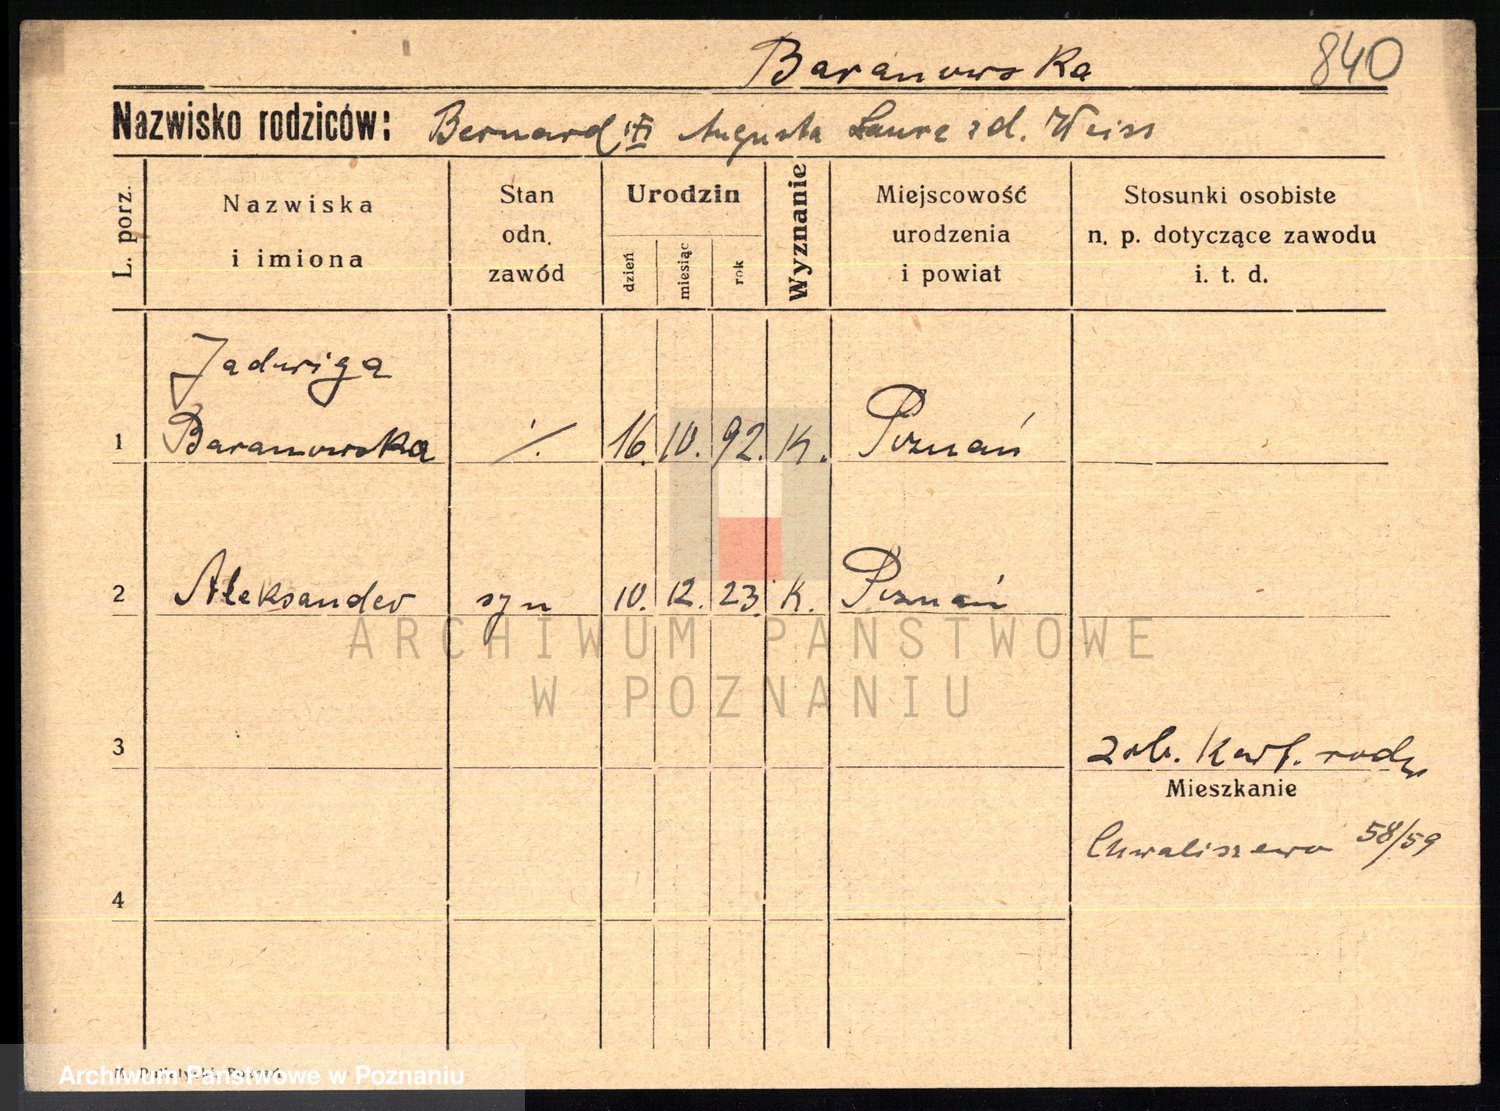 Baranowska
840
Nazwisko rodziców: Bernard Augusta Laura zd. Weiss
L. porz.
Nazwiska
i imiona
Stan
odn.
zawód
Urodzin
dzień
miesiąc
rok
Wyznanie
Miejscowość
urodzenia
i powiat
Stosunki osobiste
n. p. dotyczące zawodu
i. t. d.
Jadwiga
1 Baranowska ·/. 16. 10. 92. K. Poznań
2 Aleksander syn 10. 12. 23. K. Poznań
ARCHIWUM PAŃSTWOWE
W POZNANIU
3
zob. Kart. rodz.
Mieszkanie
Chwaliszewo 58/59
4
Archiwum Państwowe w Poznaniu